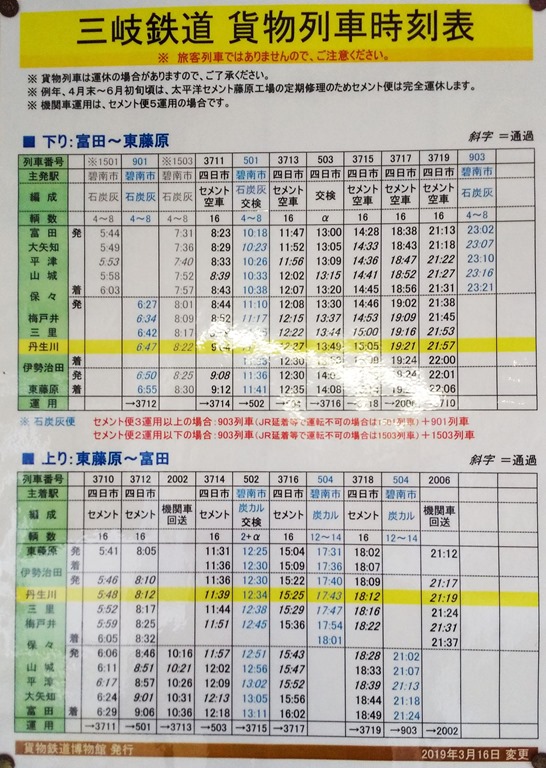 三岐鉄道 貨物列車時刻表
※ 旅客列車ではありませんので、ご注意ください。
※ 貨物列車は運休の場合がありますので、ご了承ください。
※ 例年、4月末～6月初旬頃は、太平洋セメント藤原工場の定期修理のためセメント便は完全運休します。
※ 機関車運用は、セメント便5運用の場合です。
■ 下り：富田～東藤原 斜字 =通過
列車番号 ※1501 901 ※1503 3711 501 3713 503 3715 3717 3719 903
主発駅 碧南市 碧南市 碧南市 四日市 碧南市 四日市 四日市 四日市 四日市 四日市 碧南市
編成 石炭灰 石炭灰 石炭灰 セメント空車 石炭灰交検 セメント空車 交検 セメント空車 セメント空車 セメント空車 石炭灰
輌数 4～8 4～8 4～8 16 4～8 16 α 16 16 16 4～8
富田 発 5:44 7:31 8:23 10:18 11:47 13:00 14:28 18:38 21:13 23:02
大矢知 5:49 7:36 8:29 10:23 11:52 13:05 14:33 18:43 21:18 23:07
平津 5:53 7:40 8:33 10:26 11:56 13:09 14:36 18:47 21:22 23:10
山城 5:58 7:52 8:39 10:33 12:02 13:15 14:41 18:52 21:27 23:16
保々 着 6:03 7:57 8:43 10:38 12:07 13:20 14:45 18:56 21:31 23:21
発 6:27 8:01 8:44 11:10 12:08 13:30 14:46 19:02 21:38
梅戸井 6:34 8:09 8:52 11:17 12:15 13:37 14:53 19:09 21:45
三里 6:42 8:17 11:24 12:22 13:44 15:00 19:16 21:53
丹生川 6:47 8:22 13:49 15:05 19:21 21:57
伊勢治田 着 19:24 22:00
発 6:50 8:25 9:08 11:36 12:30 22:01
東藤原 着 6:55 8:30 9:12 11:41 12:35 14:08 22:06
運用 →3712 →3714 →502 →3716
※ 石炭灰便 セメント便3運用以上の場合：903列車(JR延着等で運転不可の場合は1501列車)＋901列車
セメント便2運用以下の場合：903列車(JR延着等で運転不可の場合は1503列車)＋1503列車
■ 上り：東藤原～富田 斜字 =通過
列車番号 3710 3712 2002 3714 502 3716 504 3718 504 2006
主着駅 四日市 四日市 四日市 碧南市 四日市 碧南市 四日市 碧南市
編成 セメント セメント 機関車回送 セメント 炭カル交検 セメント 炭カル セメント 炭カル 機関車回送
輌数 16 16 16 2+α 16 12～14 16 12～14
東藤原 発 5:41 8:05 11:31 12:25 15:04 17:31 18:02 21:12
伊勢治田 着 11:36 12:30 15:09 17:36 18:07
発 5:46 8:10 11:36 12:30 15:22 17:40 18:09 21:17
丹生川 5:48 8:12 11:39 12:34 15:25 17:43 18:12 21:19
三里 5:52 8:17 11:44 12:38 15:29 17:47 18:16 21:24
梅戸井 5:59 8:25 11:51 12:45 15:36 17:54 18:22 21:31
保々 着 6:05 8:32 18:01 21:37
発 6:06 8:46 10:16 11:57 12:51 15:43 18:28 21:02
山城 6:11 8:51 10:21 12:02 12:56 15:47 18:33 21:07
平津 6:17 8:57 10:26 12:09 13:02 15:52 18:39 21:13
大矢知 6:24 9:01 10:31 12:13 13:05 15:56 18:44 21:18
富田 着 6:29 9:06 10:36 12:18 13:11 16:02 18:49 21:24
運用 →3711 →501 →3713 →503 →3715 →3717 →3719 →903 →2002
貨物鉄道博物館 発行 2019年3月16日 変更